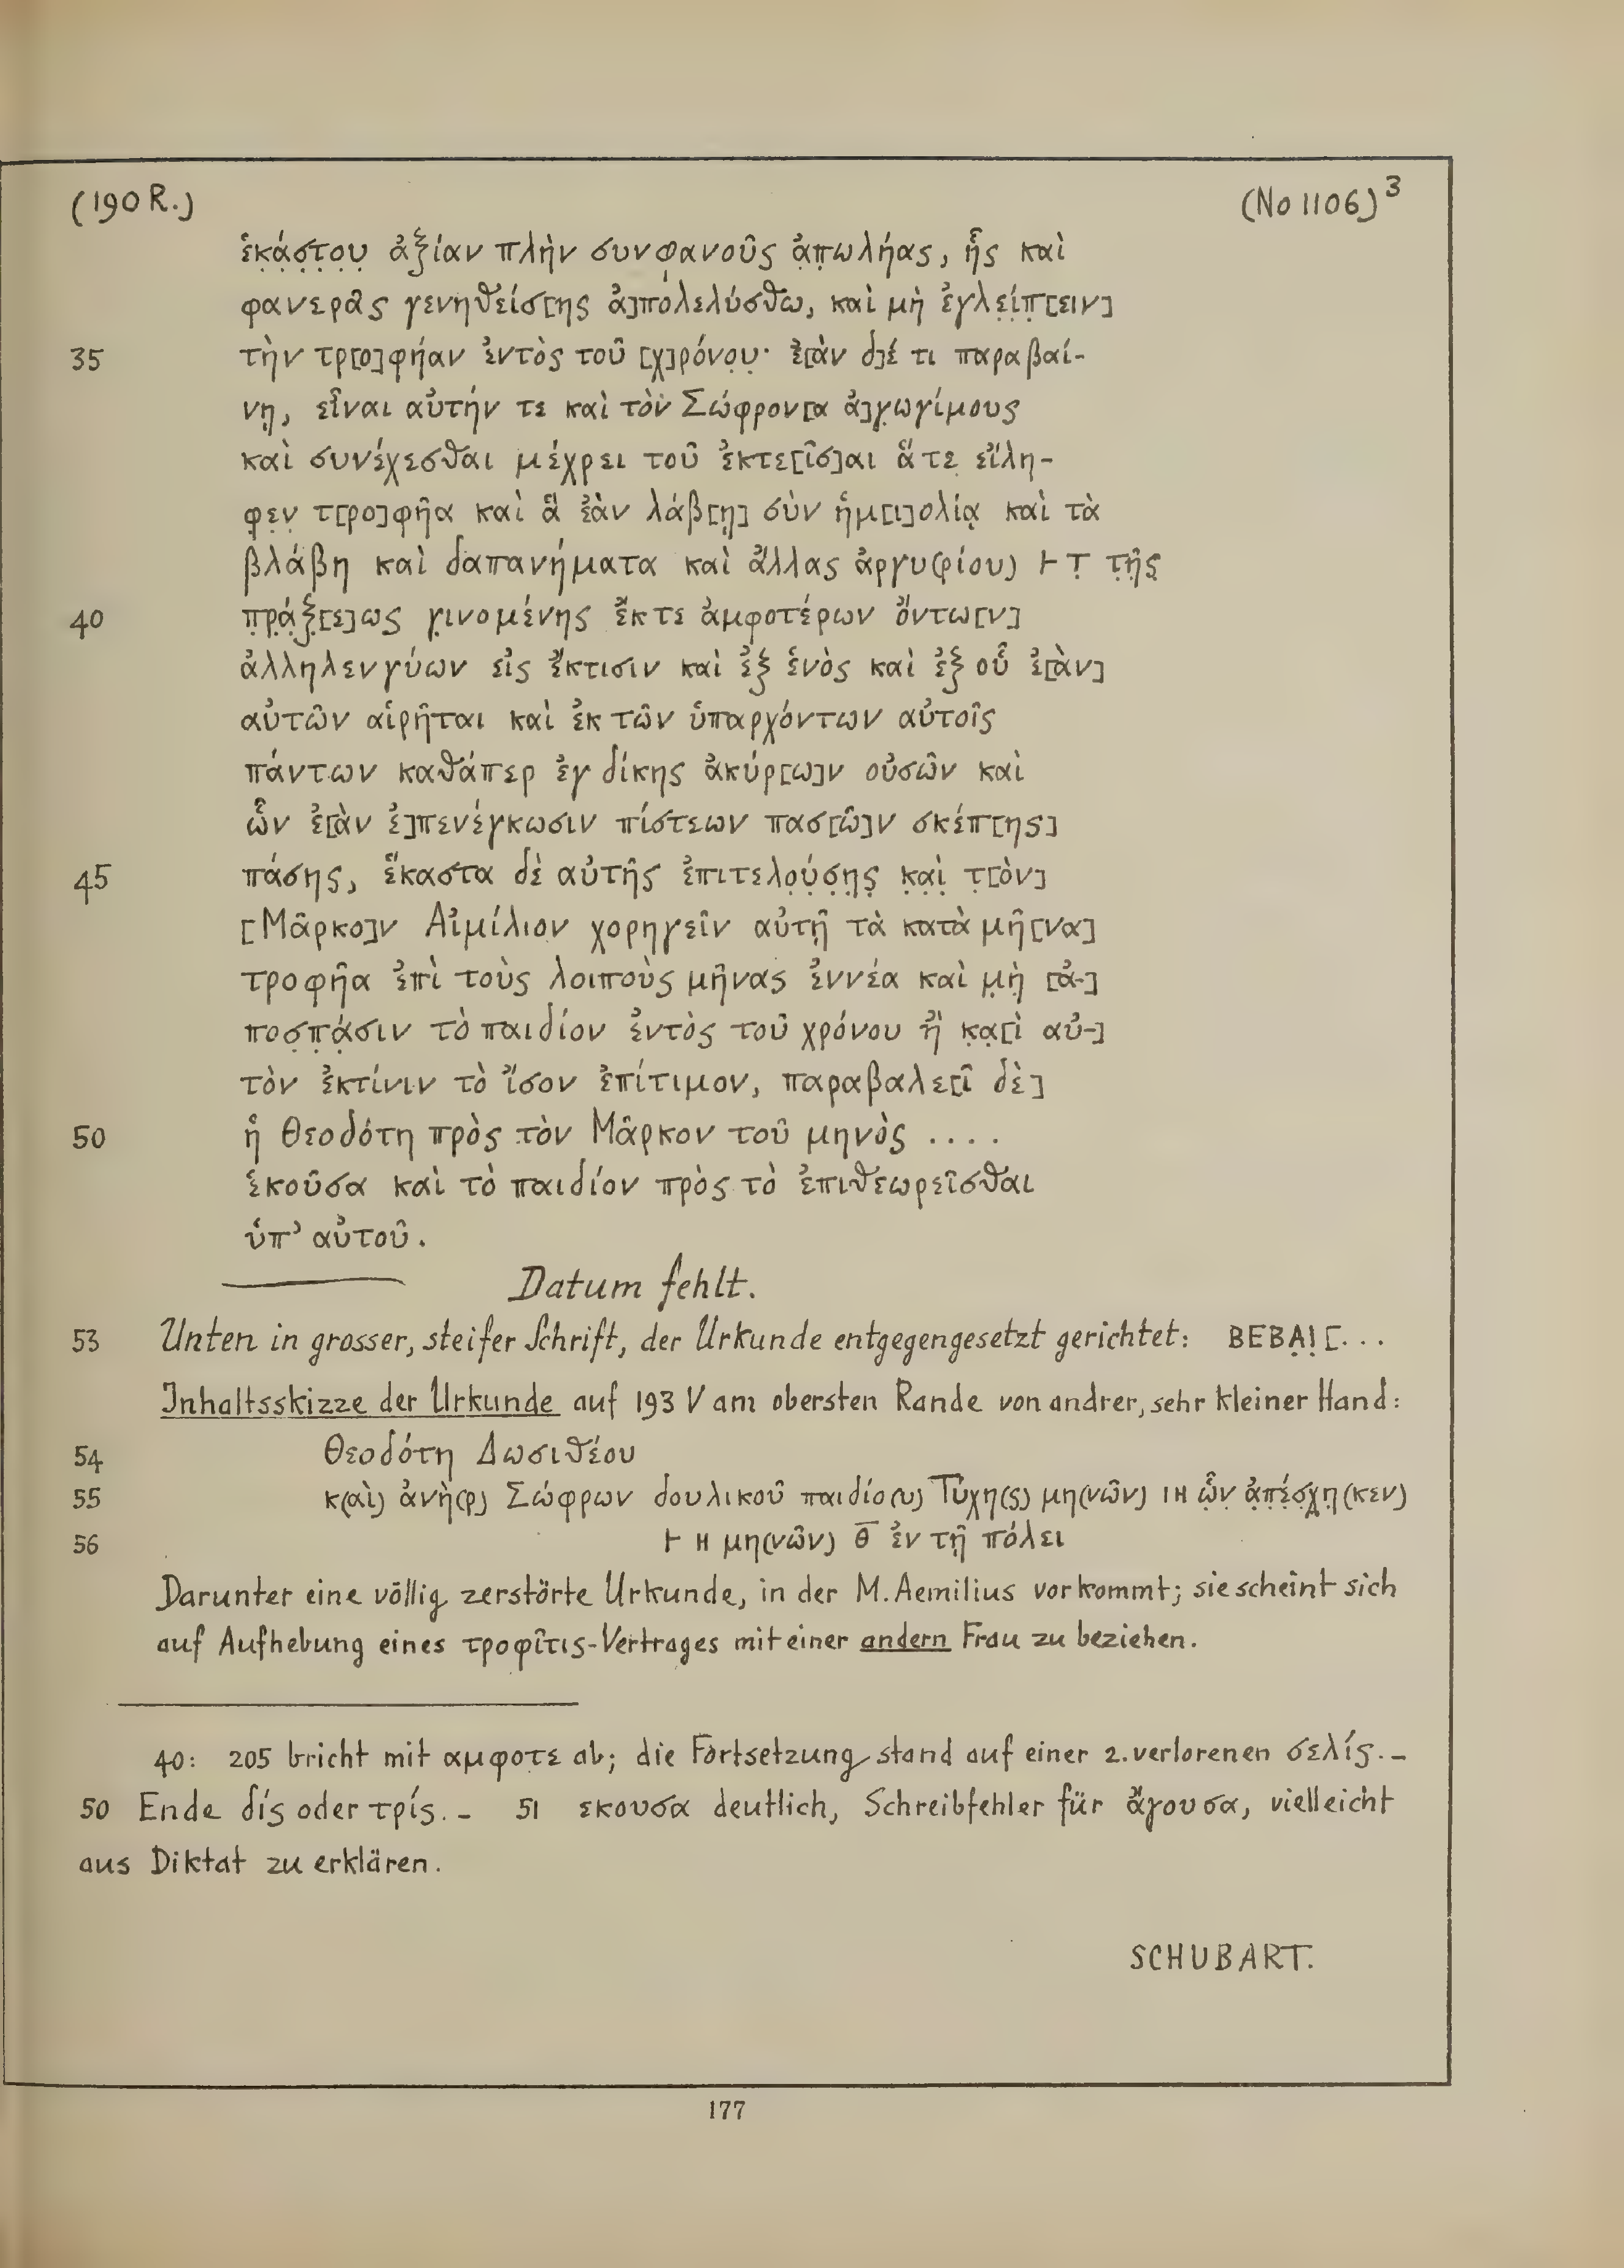 (190 R.) (No 1106)³
ἑκ̣ά̣σ̣τ̣ο̣υ̣ ἀξίαν πλὴν συνφανοῦς ἀ̣π̣ωλήας, ἧς καὶ
φανερᾶς γενηθείσ[ης ἀ]πολελύσθω, καὶ μὴ ἐγλε̣ί̣π̣[ειν]
35 τὴν τρ[ο]φήαν ἐντὸς τοῦ [χ]ρόνο̣υ̣· ἐ̣[ὰν δ]έ τι παραβαί-
νῃ, εἶναι αὐτήν τε καὶ τὸν Σώφρον[α ἀ]γ̣ωγίμους
καὶ συνέχεσθαι μέχρει τοῦ ἐκτε[ῖσ]αι ἅ τε̣ εἴλη-
φ̣ε̣ν̣ τ[ρο]φῆα καὶ ἃ ἐὰν λάβ[ῃ] σὺν ἡμ[ι]ολίᾳ καὶ τὰ
βλάβη καὶ δαπανήματα καὶ ἄλλας ἀργυ(ρίου) ⊢ Τ̣ τ̣ῆ̣ς̣
40 π̣ρ̣ά̣ξ̣[ε]ως γ̣ινομένης ἔκ τε ἀμφοτέρων ὄντω[ν]
ἀλληλενγύων εἰς ἔκτισιν καὶ ἐξ ἑνὸς καὶ ἐξ οὗ ἐ[ὰν]
αὐτῶν αἱρῆται καὶ ἐκ τῶν ὑπαρχόντων αὐτοῖς
πάντων καθάπερ ἐγ δίκης ἀκύρ[ω]ν οὐσῶν καὶ
ὧν ἐ[ὰν ἐ]πενέγκωσιν πίστεων πασ[ῶ]ν σκέπ[ης]
45 πάσης, ἕκαστα δὲ αὐτῆς ἐπιτελο̣ύ̣σ̣η̣ς̣ κ̣α̣ὶ̣ τ̣[ὸν]
[Μᾶρκο]ν Αἰμίλιον χορηγεῖν αὐτῇ τὰ κατὰ μῆ[να]
τροφῆα ἐπὶ τοὺς λοιποὺς μῆνας ἐννέα καὶ μ̣ὴ̣ [ἀ-]
ποσ̣π̣ά̣σιν τὸ παιδίον ἐντὸς τοῦ χρόνου ἢ κ̣α̣[ὶ αὐ-]
τὸν ἐκτίνιν τὸ ἴσον ἐπίτιμον, παραβαλε[ῖ δὲ]
50 ἡ Θεοδότη πρὸς τὸν Μᾶρκον τοῦ μηνὸς . . . .
ἑκοῦσα καὶ τὸ παιδίον πρὸς τὸ ἐπιθεωρεῖσθαι
ὑπ’ αὐτοῦ.
Datum fehlt.
53 Unten in grosser, steifer Schrift, der Urkunde entgegengesetzt gerichtet: BEBẠỊ[...
Inhaltsskizze der Urkunde auf 193 V am obersten Rande von andrer, sehr kleiner Hand:
54 Θεοδότη Δωσιθέου
55 κ(αὶ) ἀνὴ(ρ) Σώφρων δουλικοῦ παιδίο(υ) Τύχη(ς) μη(νῶν) ΙΗ ὧ̣ν̣ ἀ̣π̣έ̣σ̣χ̣η̣(κεν)
56 ⊢ Η μη(νῶν) θ̅ ἐν τῇ πόλει
Darunter eine völlig zerstörte Urkunde, in der M. Aemilius vorkommt; sie scheint sich
auf Aufhebung eines τροφῖτις-Vertrages mit einer andern Frau zu beziehen.
40: 205 bricht mit αμφοτε ab; die Fortsetzung stand auf einer 2. verlorenen σελίς. –
50 Ende δίς oder τρίς. – 51 εκουσα deutlich, Schreibfehler für ἄγουσα, vielleicht
aus Diktat zu erklären.
SCHUBART.
177